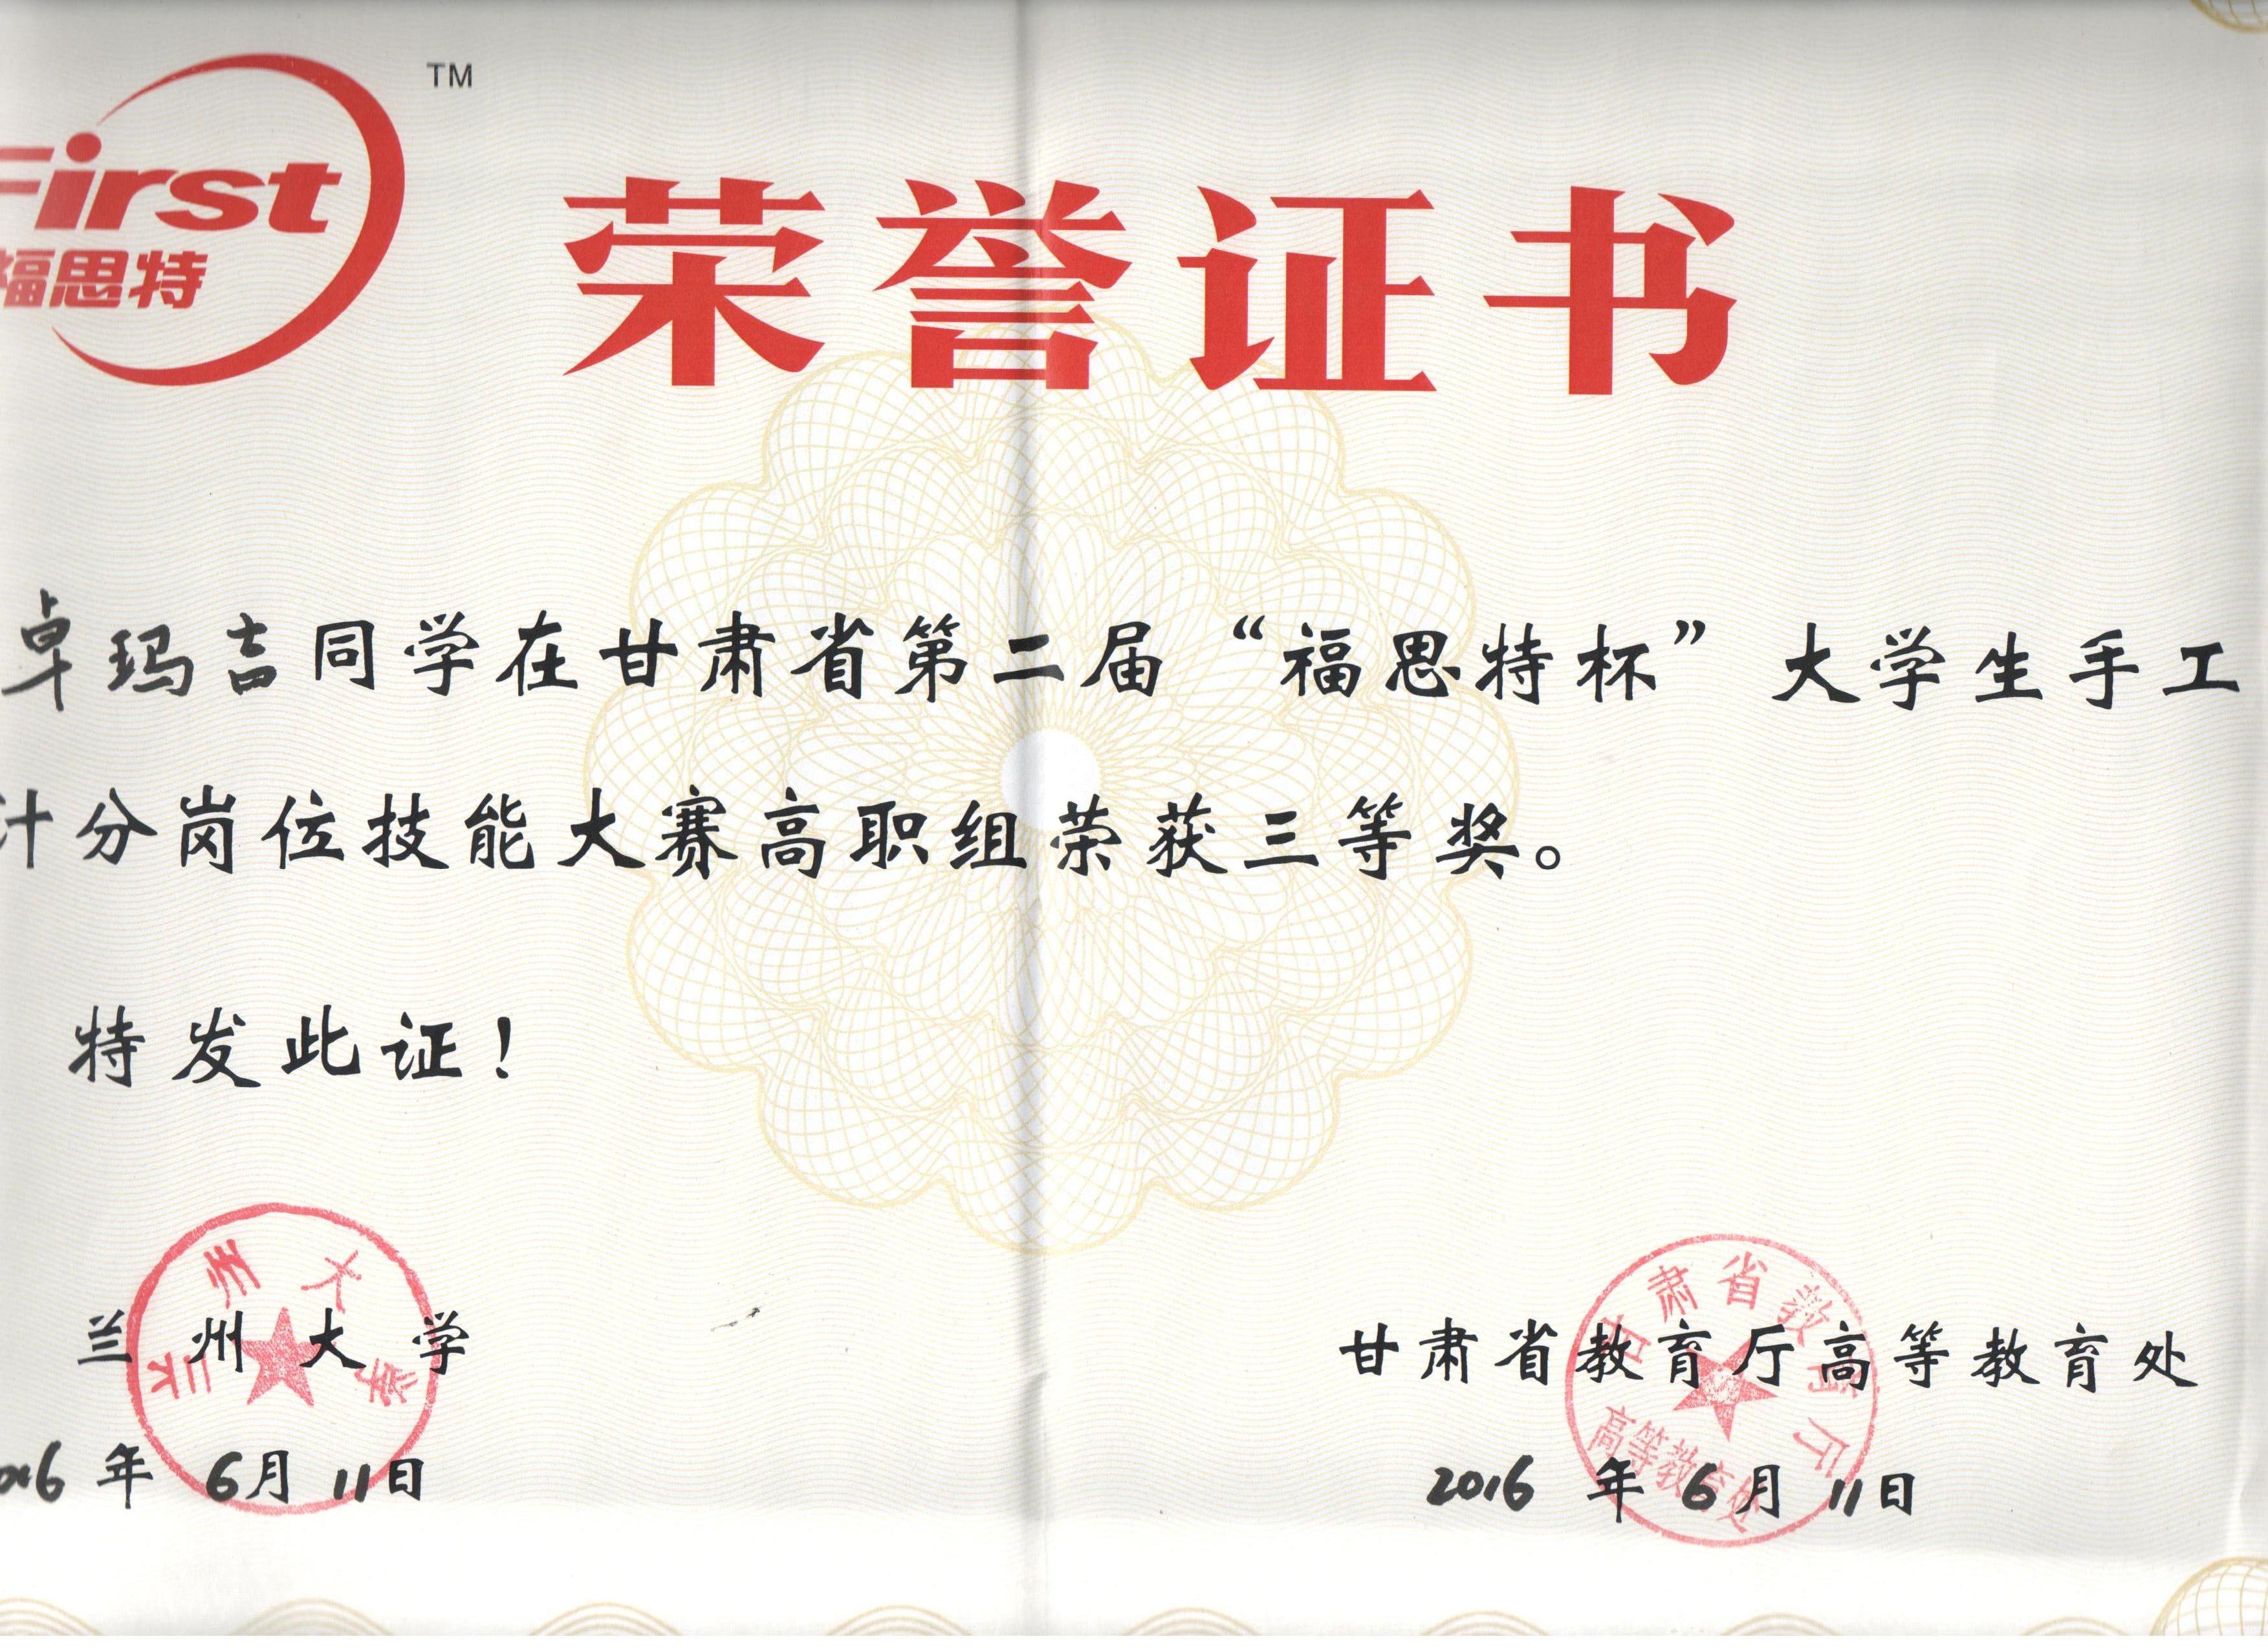 First
TM
福思特
荣誉证书
卓玛吉同学在甘肃省第二届“福思特杯”大学生手工
计分岗位技能大赛高职组荣获三等奖。
特发此证！
兰州大学
兰州大学
016年6月11日
甘肃省教育厅高等教育处
甘肃省教育厅
高等教育处
2016年6月11日